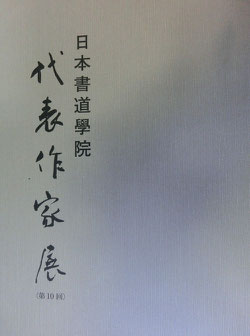 日本書道學院
代表作家展
(第10回)